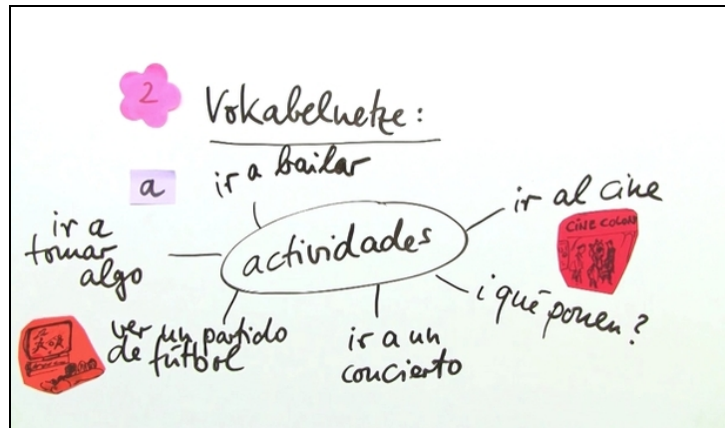 2
Vokabelnetze:
a
ir a bailar
ir al cine
CINE COLON
ir a
tomar
algo
actividades
¿qué ponen?
ver un partido
de fútbol
ir a un
concierto